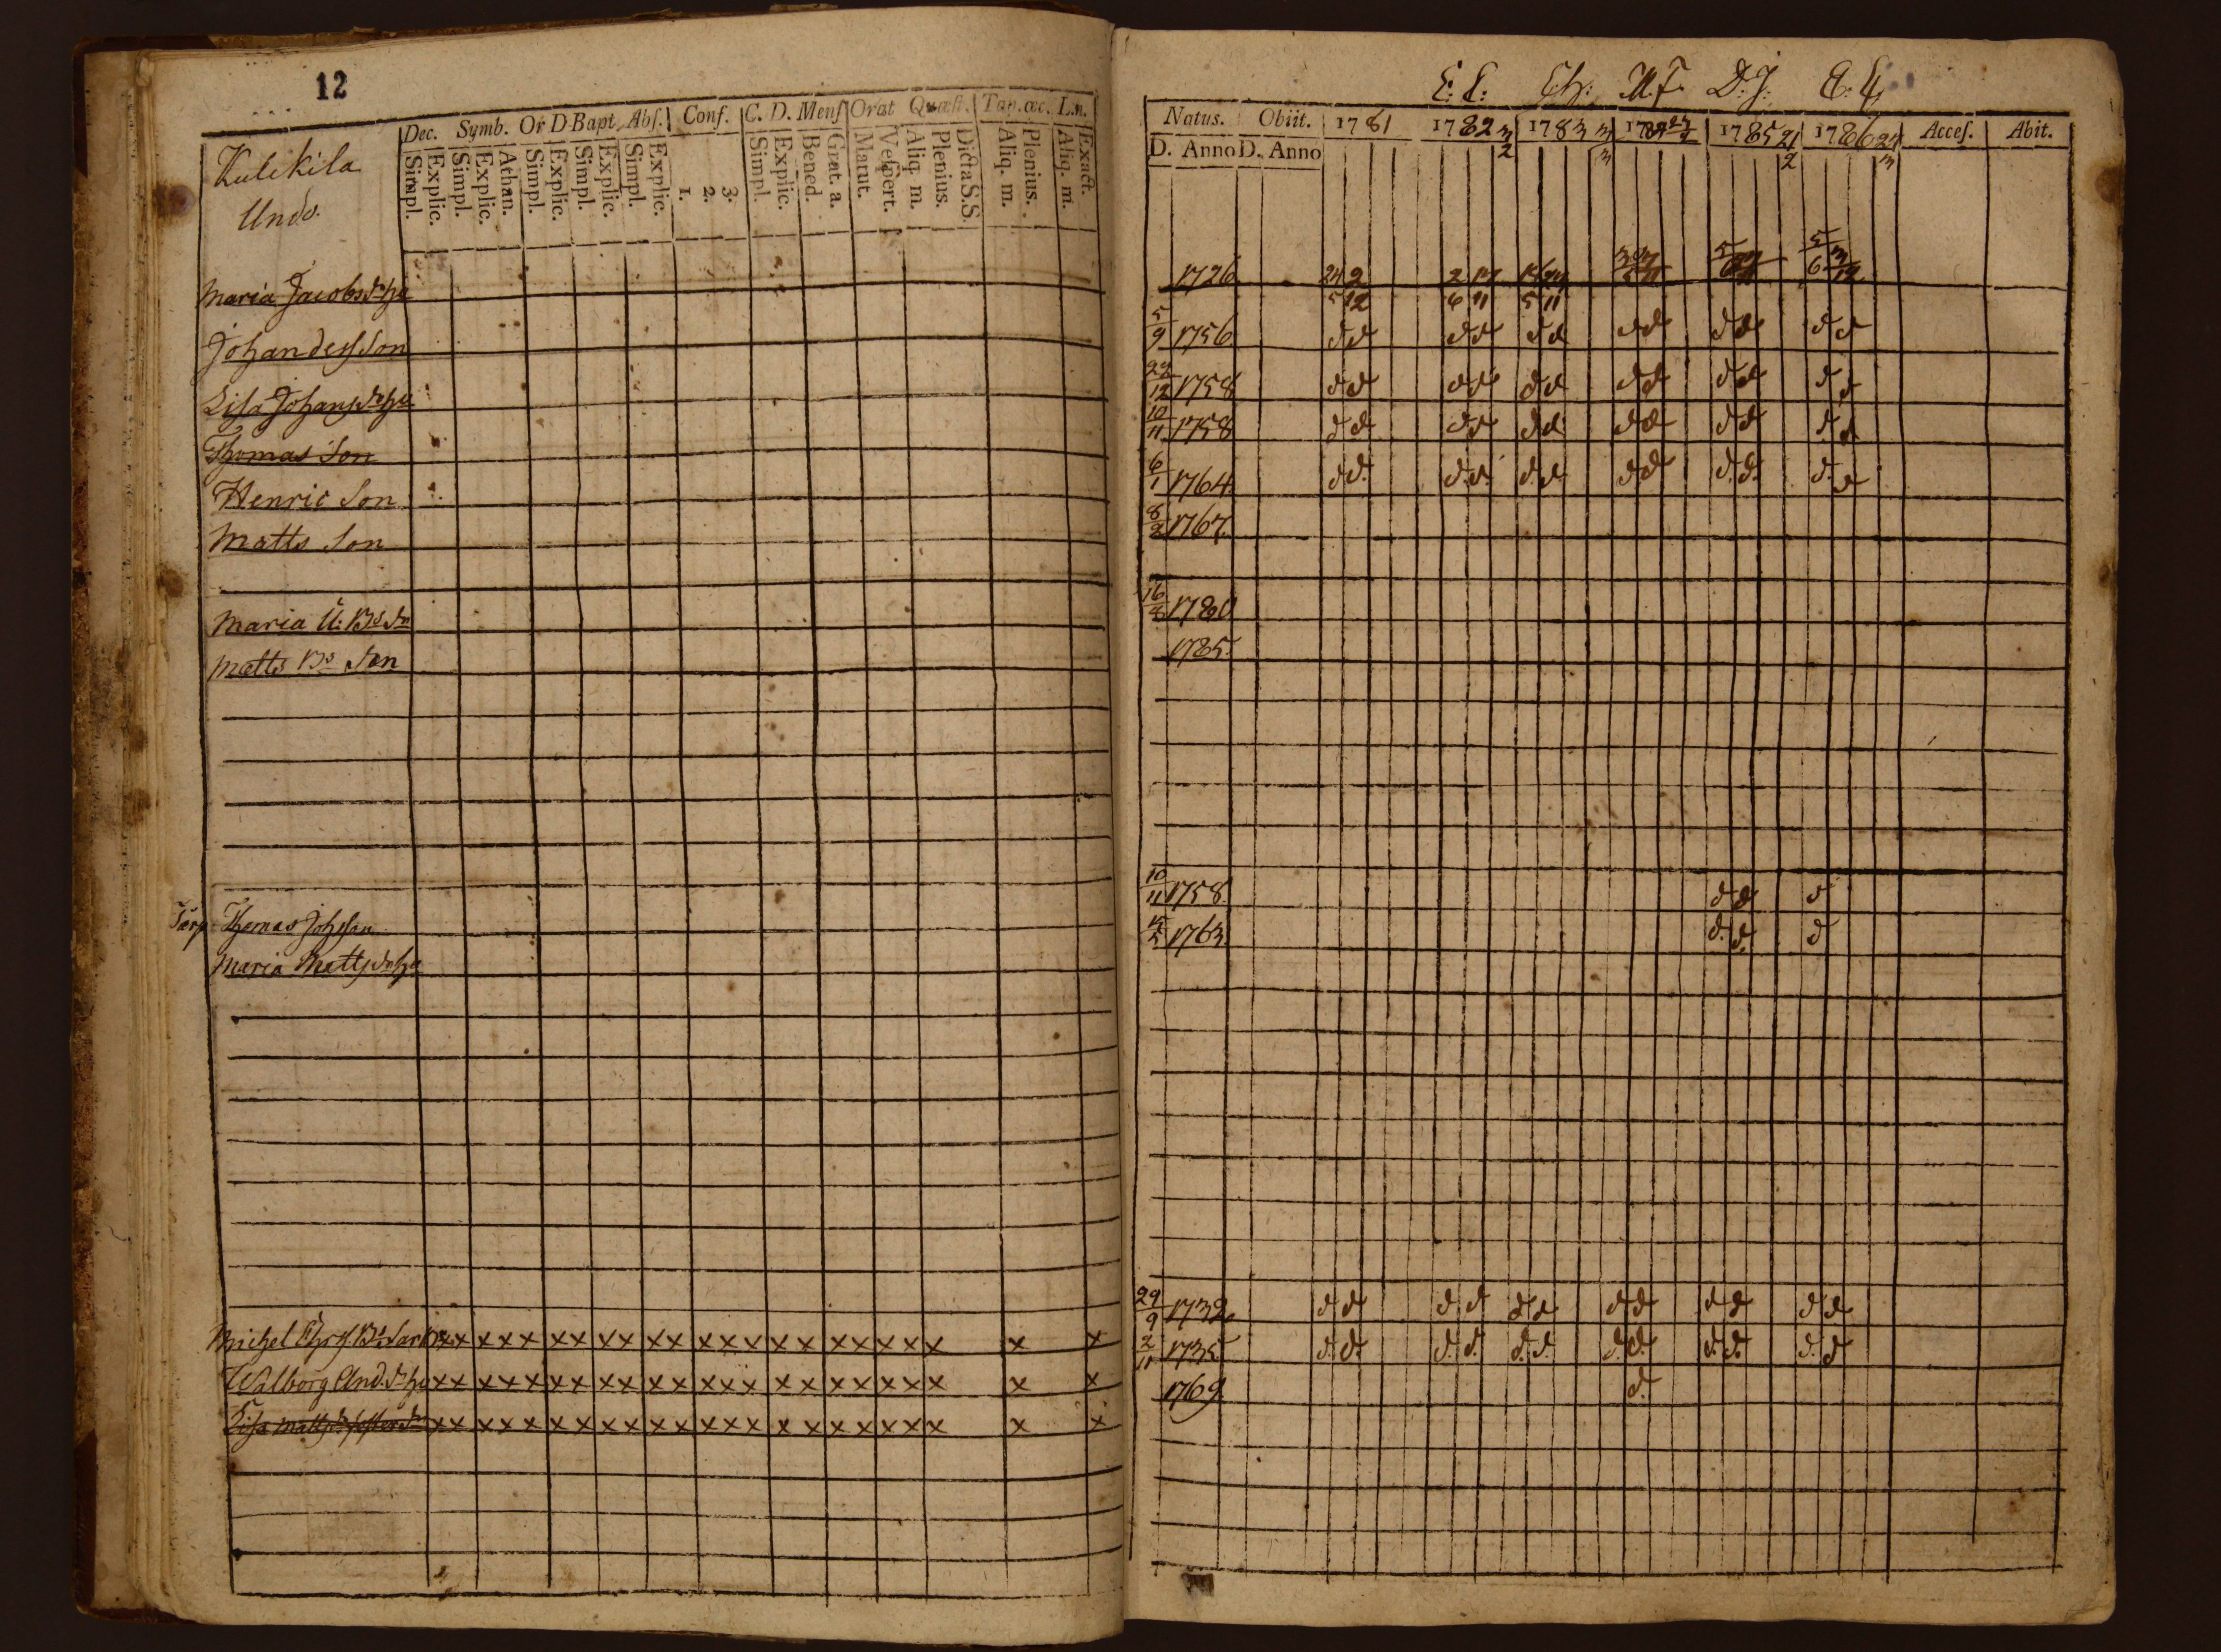 12
Dec. Symb. Or D Bapt. Abſ. Conf. C. D. Menſ Orat Quæſt. Tab. œc. L.n.
Simpl. Explic. Simpl. Explic. Athan. Simpl. Explic. Simpl. Explic. Simpl. Explic. 1. 2. 3. Simpl. Explic. Bened. Grat. a. Matut. Veſpert. Aliq. m. Plenius. Dicta S.S. Aliq. m. Plenius. Aliq. m. Exact.
Kulckila
Undo.
Maria Jacobsd:r
Johan des Son
Lisa Johansd:r
Thomas Son
Henric Son
Matts Son
Maria
Matts B:s Son
Torp Thomas Johsson
Maria Mattsd:r
Michel x x x x x x x x x x x x x x x x x x x x x
Walborg And. x x x x x x x x x x x x x x x x x x x x x x x
Lisa Matts x x x x x x x x x x x x x x x x x x x x x x x
E: E: M: F. D: J:
Natus. Obiit. 1781 1782 3/2 1783 3/3 1784 1785 21/2 1786 24/3 Acceſ. Abit.
D. Anno D. Anno
1726 24/5 2/12 2/6 17/11
5/9 1756 d d d d d d d d d d d d
22/12 1758 d d d d d d d d d d d d
10/11 1758 d d d d d d d d d d d d
6/1 1764 d d. d. d. d. d. d d d. d. d. d
8/2 1767.
16/8 1780
1785.
10/11 1758. d d d
1763. d. d. d
29/9 1732. d d d d d d d d d d d d
2/11 1735 d. d. d. d. d. d. d. d. d. d. d. d
1769. d.